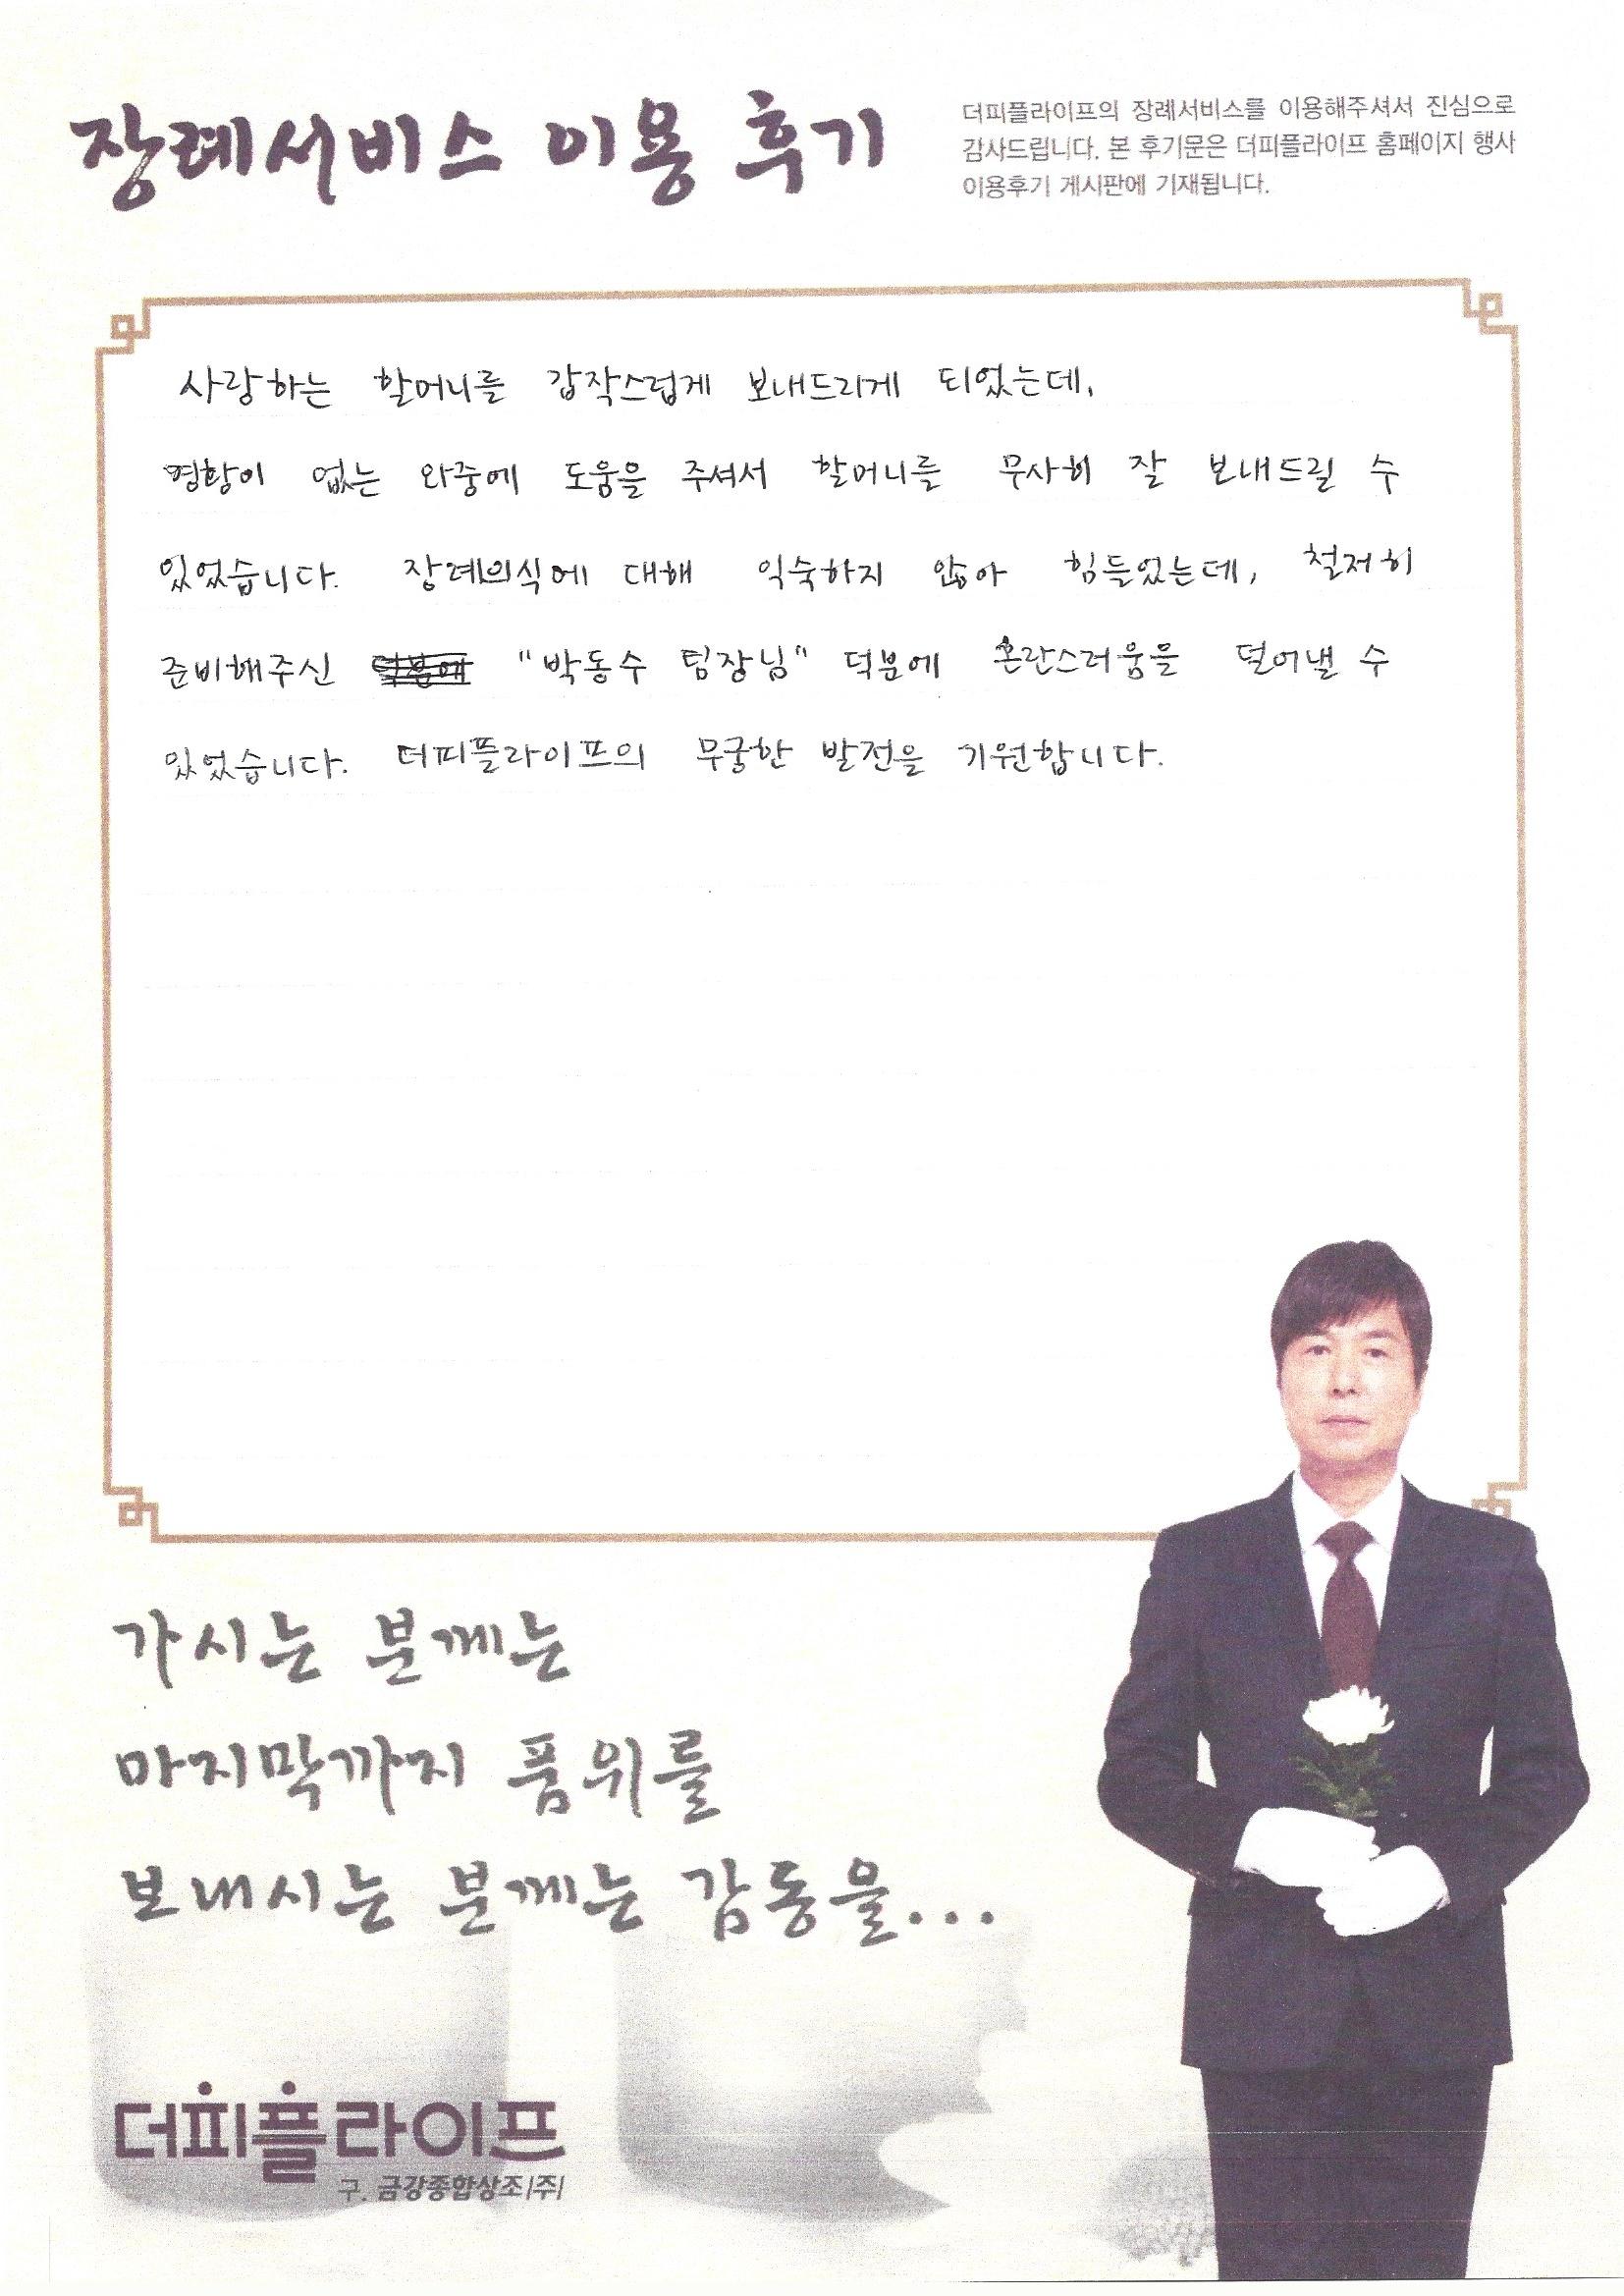 장례서비스 이용 후기
더피플라이프의 장례서비스를 이용해주셔서 진심으로
감사드립니다. 본 후기문은 더피플라이프 홈페이지 행사
이용후기 게시판에 기재됩니다.
사랑하는 할머니를 갑작스럽게 보내드리게 되었는데,
경황이 없는 와중에 도움을 주셔서 할머니를 무사히 잘 보내드릴 수
있었습니다. 장례의식에 대해 익숙하지 않아 힘들었는데, 철저히
준비해주신 "박동수 팀장님" 덕분에 혼란스러움을 덜어낼 수
있었습니다. 더피플라이프의 무궁한 발전을 기원합니다.
가시는 분께는
마지막까지 품위를
보내시는 분께는 감동을...
더피플라이프
구. 금강종합상조(주)